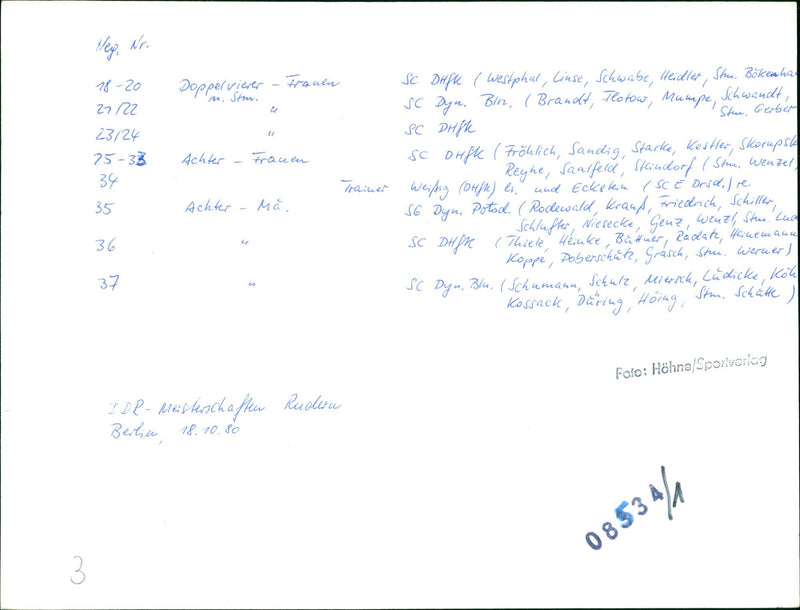 Neg. Nr.
18-20 Doppelvierer - Frauen SC DHfK (Westphal, Linse, Schwabe, Heidler, Stm. Bökenhau
m. Stm.
21/22 " SC Dyn. Bln. (Brandt, Flotow, Mumpe, Schwandt,
Stm. Gerber
23/24 " SC DHfK
25-33 Achter - Frauen SC DHfK (Fröhlich, Sandig, Starke, Köstler, Skorupsk
Reyhe, Saalfeld, Steindorf (Stm. Wenzel,
34 Trainer Weißig (DHfK) li. und Eckstein (SC E Drsd.) re
35 Achter - Mä. SG Dyn. Potsd. (Rodewald, Krauß, Friedrich, Schiller,
Schlufter, Niesecke, Genz, Wenzl, Stm. Lud
36 " SC DHfK (Thiele, Heinke, Büttner, Radatz, Heinemann
Koppe, Doberschütz, Grasch, Stm. Werner)
37 " SC Dyn. Bln. (Schumann, Schulz, Miersch, Lüdicke, Köh
Kossack, Düring, Höing, Stm. Schütte)
Foto: Höhne/Sportverlag
DDR-Meisterschaften Rudern
Berlin, 18.10.80
08534/1
3